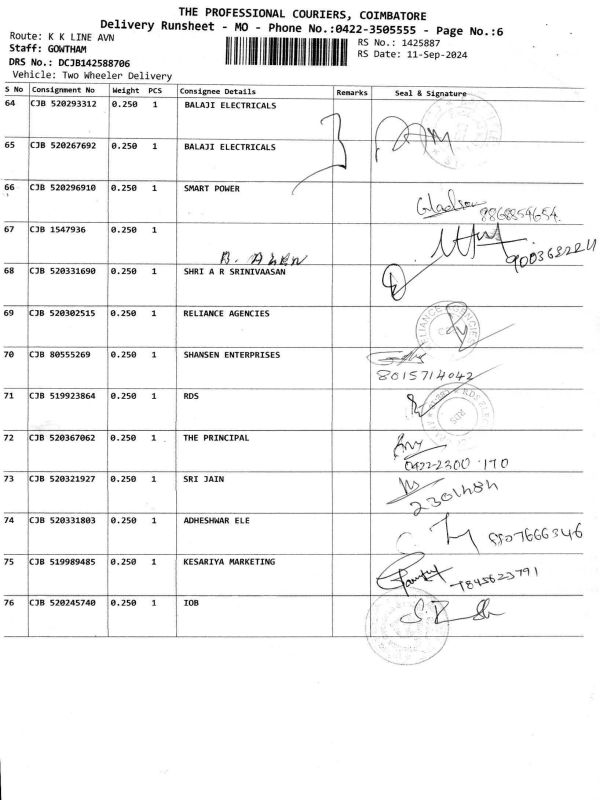 THE PROFESSIONAL COURIERS, COIMBATORE
Delivery Runsheet - MO - Phone No.:0422-3505555 - Page No.:6
Route: K K LINE AVN
RS No.: 1425887
Staff: GOWTHAM
RS Date: 11-Sep-2024
DRS No.: DCJB142588706
Vehicle: Two Wheeler Delivery
S No Consignment No Weight PCS Consignee Details Remarks Seal & Signature
64 CJB 520293312 0.250 1 BALAJI ELECTRICALS
65 CJB 520267692 0.250 1 BALAJI ELECTRICALS
66 CJB 520296910 0.250 1 SMART POWER
8868854654
67 CJB 1547936 0.250 1
68 CJB 520331690 0.250 1 SHRI A R SRINIVAASAN
69 CJB 520302515 0.250 1 RELIANCE AGENCIES
RELIANCE AGENCIES
70 CJB 80555269 0.250 1 SHANSEN ENTERPRISES
8015714042
71 CJB 519923864 0.250 1 RDS
RDS
72 CJB 520367062 0.250 1 THE PRINCIPAL
0422-2300 170
73 CJB 520321927 0.250 1 SRI JAIN
74 CJB 520331803 0.250 1 ADHESHWAR ELE
75 CJB 519989485 0.250 1 KESARIYA MARKETING
76 CJB 520245740 0.250 1 IOB